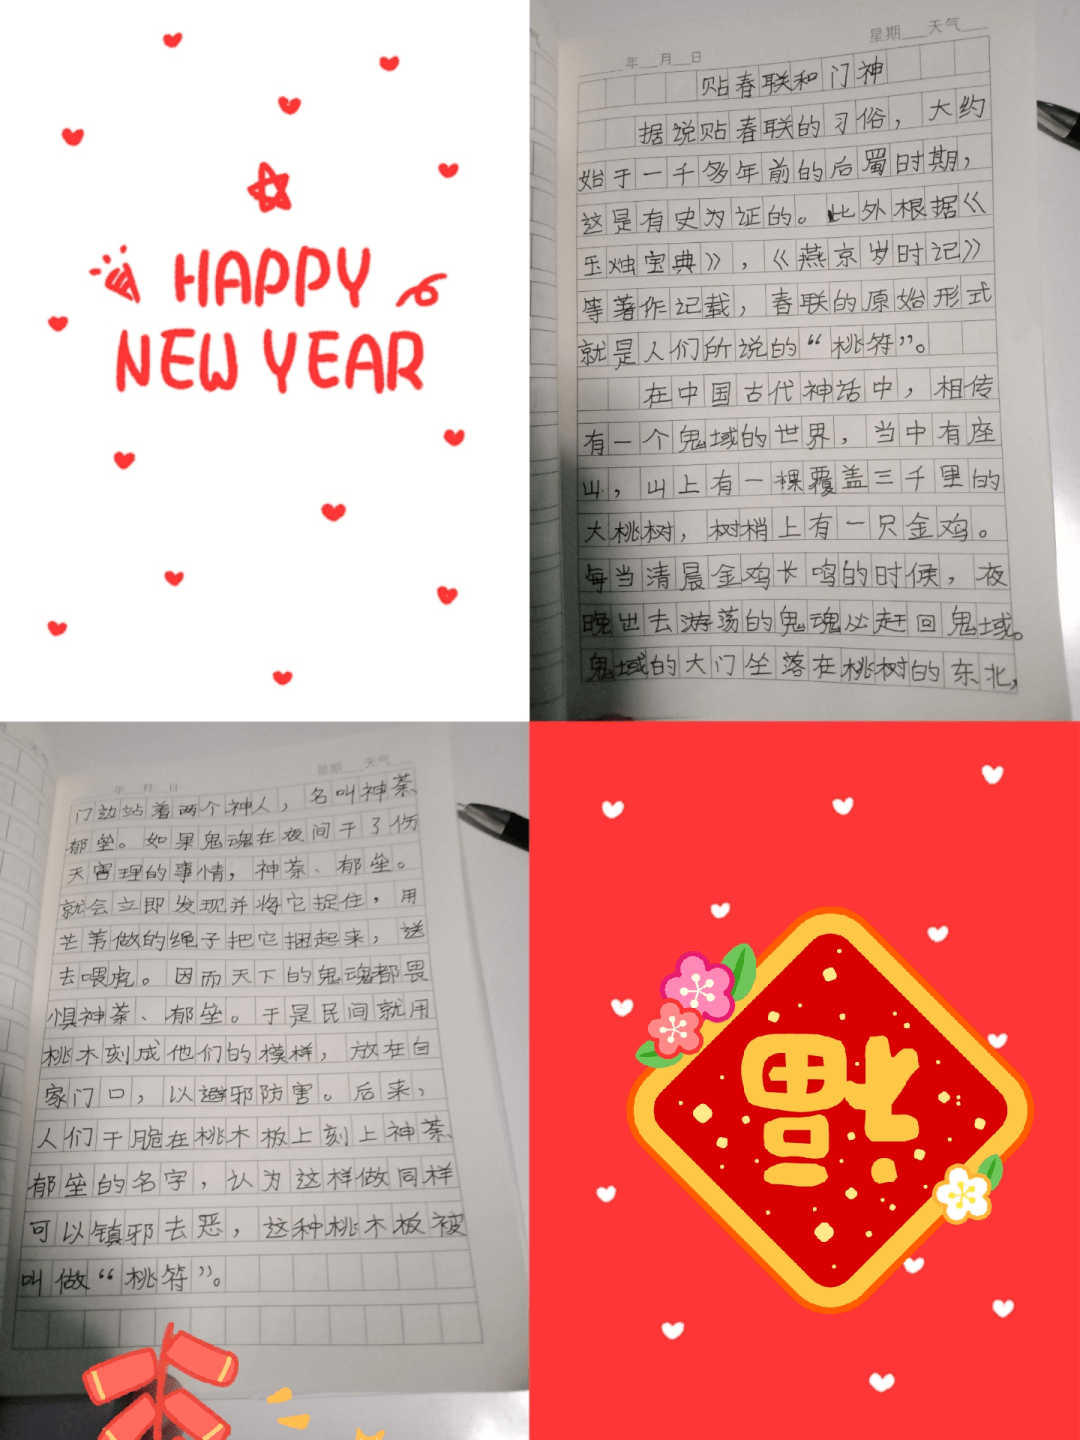 HAPPY
NEW YEAR
年 月 日
星期 天气
贴春联和门神
据说贴春联的习俗，大约
始于一千多年前的后蜀时期，
这是有史为证的。此外根据《
玉烛宝典》，《燕京岁时记》
等著作记载，春联的原始形式
就是人们所说的“桃符”。
在中国古代神话中，相传
有一个鬼域的世界，当中有座
山，山上有一棵覆盖三千里的
大桃树，树梢上有一只金鸡。
每当清晨金鸡长鸣的时候，夜
晚出去游荡的鬼魂必赶回鬼域。
鬼域的大门坐落在桃树的东北，
年 月 日
星期 天气
门边站着两个神人，名叫神荼
郁垒。如果鬼魂在夜间干了伤
天害理的事情，神荼、郁垒。
就会立即发现并将它捉住，用
芒苇做的绳子把它捆起来，送
去喂虎。因而天下的鬼魂都畏
惧神荼、郁垒。于是民间就用
桃木刻成他们的模样，放在自
家门口，以避邪防害。后来，
人们干脆在桃木板上刻上神荼
郁垒的名字，认为这样做同样
可以镇邪去恶，这种桃木板被
叫做“桃符”。
福